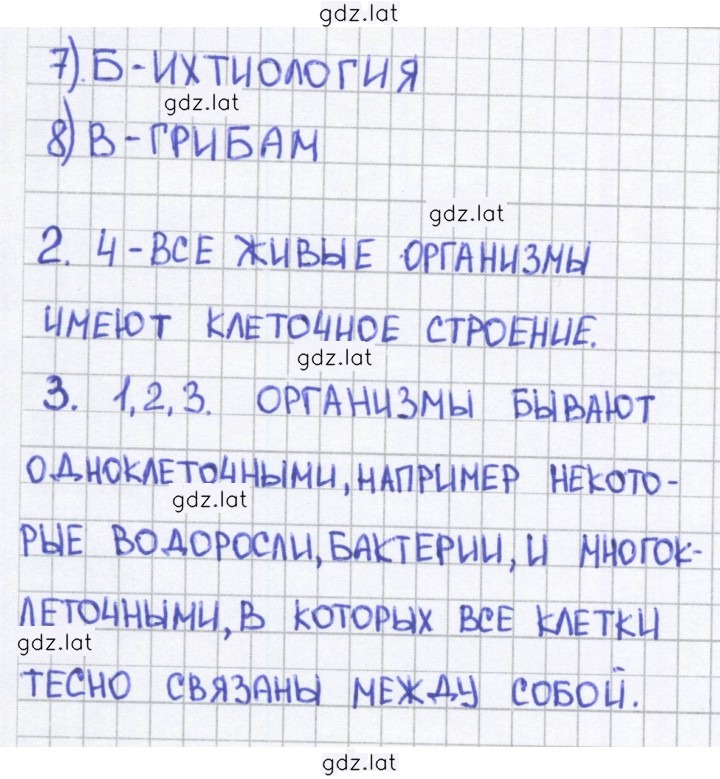 gdz.lat
7) Б - ИХТИОЛОГИЯ
gdz.lat
8) В - ГРИБАМ
gdz.lat
2. 4 - ВСЕ ЖИВЫЕ ОРГАНИЗМЫ
ИМЕЮТ КЛЕТОЧНОЕ СТРОЕНИЕ.
gdz.lat
3. 1,2,3. ОРГАНИЗМЫ БЫВАЮТ
ОДНОКЛЕТОЧНЫМИ, НАПРИМЕР НЕКОТО-
gdz.lat
РЫЕ ВОДОРОСЛИ, БАКТЕРИИ, И МНОГОК-
ЛЕТОЧНЫМИ, В КОТОРЫХ ВСЕ КЛЕТКИ
gdz.lat
ТЕСНО СВЯЗАНЫ МЕЖДУ СОБОЙ.
gdz.lat